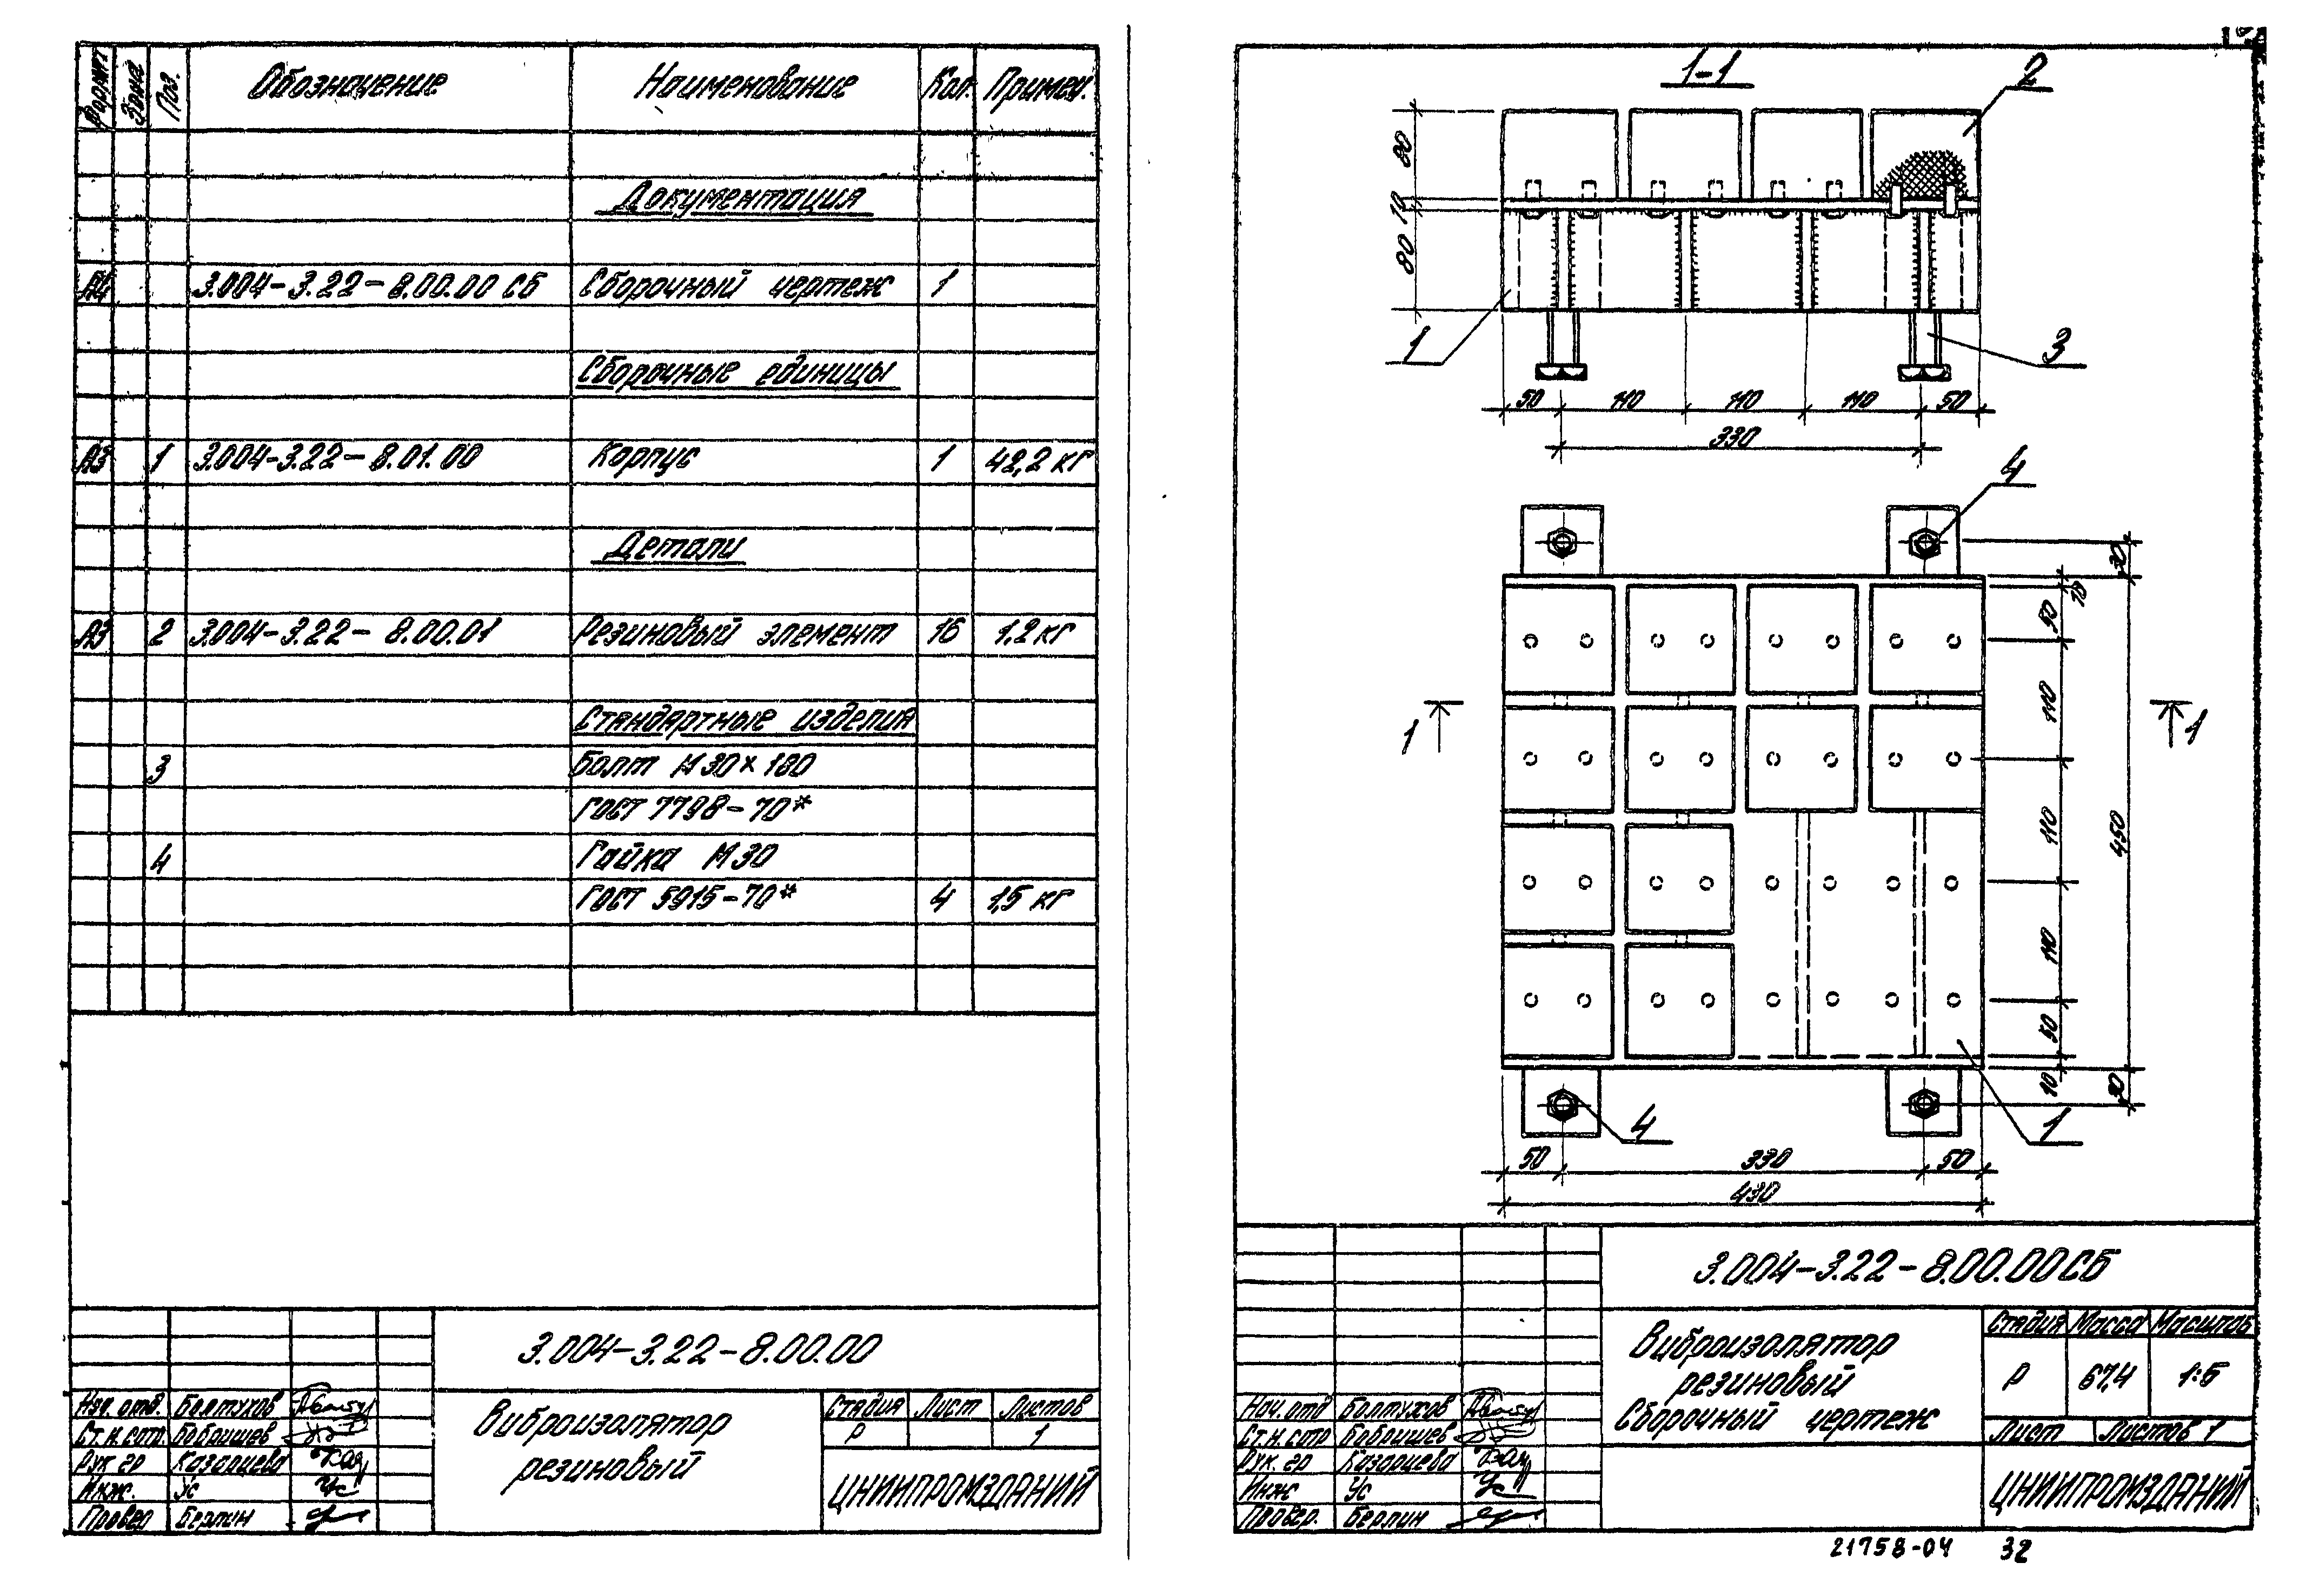 Формат Зона Поз. Обозначение Наименование Кол. Примеч.
Документация
А4 3.004-3.22-8.00.00 СБ Сборочный чертеж 1
Сборочные единицы
А3 1 3.004-3.22-8.01.00 Корпус 1 42,2 кг
Детали
А3 2 3.004-3.22-8.00.01 Резиновый элемент 16 1,2 кг
Стандартные изделия
3 Болт М30×180
ГОСТ 7798-70*
4 Гайка М30
ГОСТ 5915-70* 4 1,5 кг
3.004-3.22-8.00.00
Нач. отд. Болтухов
Ст. н. сотр. Бобришев
Рук гр Казарцева
Инж. Ус
Провер Берлин
Виброизолятор
резиновый
Стадия Лист Листов
Р 1
ЦНИИПРОМЗДАНИЙ
1-1
2
80
10
80
1
3
50 110 110 110 50
330
4
30
10
50
110
1 1
110
450
110
50
10
30
4
1
50 330 50
430
3.004-3.22-8.00.00СБ
Нач. отд Болтухов
Ст. н. сотр Бобришев
Рук. гр Казарцева
Инж Ус
Провер. Берлин
Виброизолятор
резиновый
Сборочный чертеж
Стадия Масса Масштаб
Р 67,4 1:5
Лист Листов 1
ЦНИИПРОМЗДАНИЙ
21758-04 32